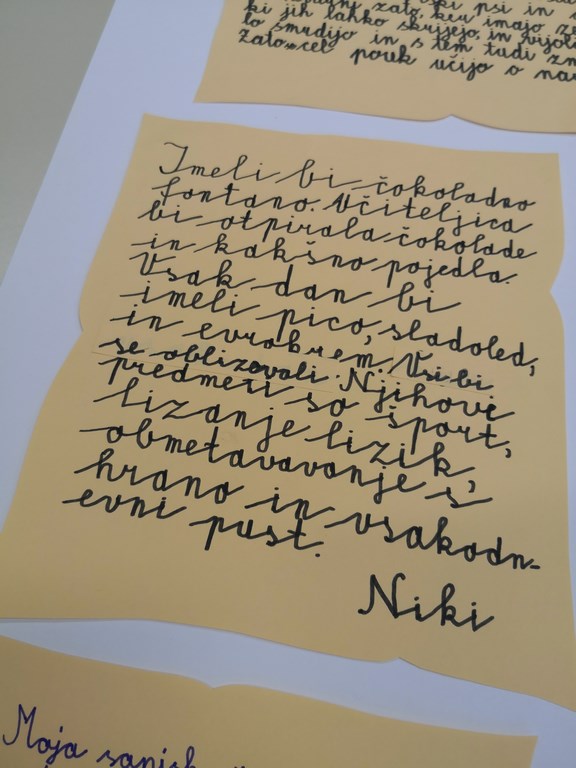 zato, ker imajo
psi in
ki jih lahko skrijejo, in
lo smrdijo in s tem tudi
pouk učijo o
Imeli bi čokoladno
fontano. Učiteljica
bi otpirala čokolade
in kakšno pojedla.
Vsak dan bi
imeli pico, sladoled,
in evrokrem. Vsi bi
se oblizovali. Njihovi
predmeti so šport,
lizanje lizik,
obmetavavanje s
hrano in vsakodn-
evni pust.
Niki
Moja